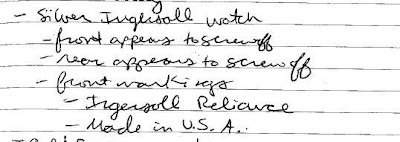 - Silver Ingersoll watch
- front appears to screw off
- rear appears to screw off
- front markings
- Ingersoll Reliance
- Made in U.S.A.